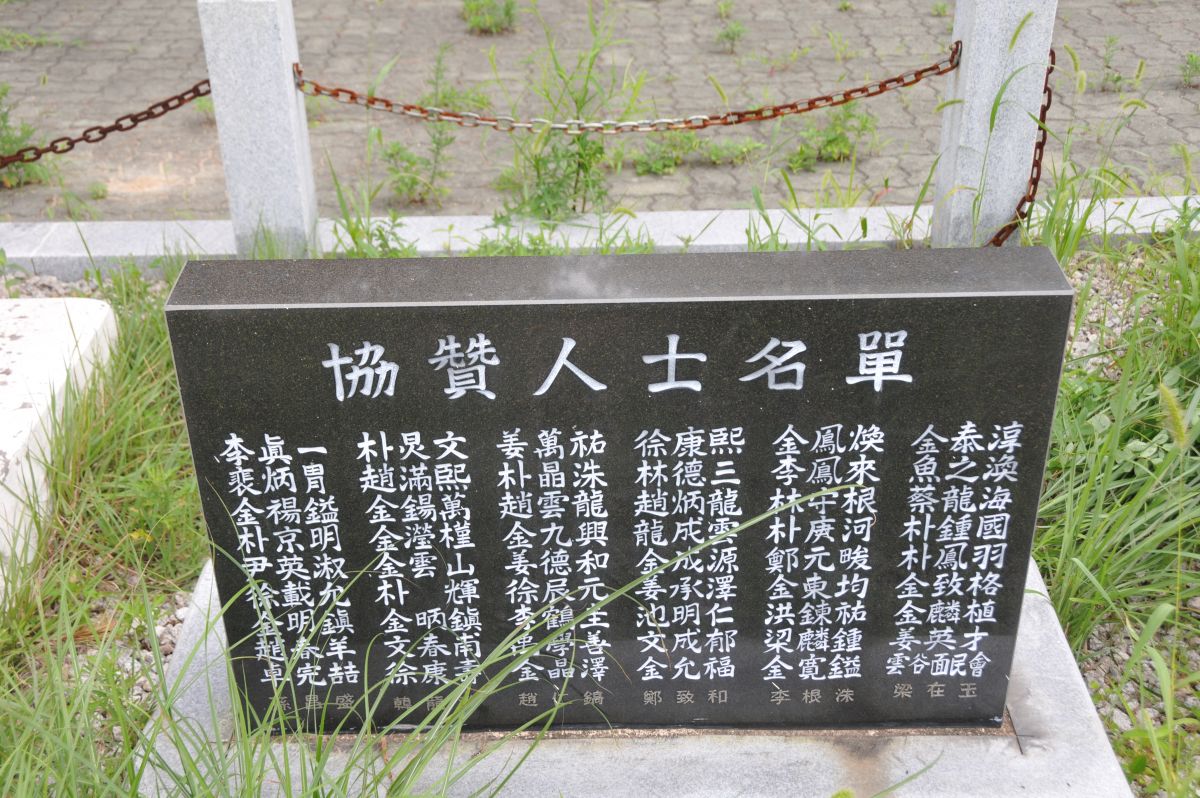 協贊人士名單
李眞一 朴炅文 姜萬祐 徐康熙 金鳳煥 金泰淳
裵炳胄 趙滿熙 朴晶洙 林德三 李鳳來 魚之渙
金禓鎰 金鍚萬 趙雲龍 趙炳龍 林守根 蔡龍海
朴京明 金瀅槿 金九興 龍成雲 朴庚河 朴鍾國
尹英淑 金雲山 姜德和 金成源 鄭元畯 朴鳳羽
徐載允 朴輝 徐辰元 姜承澤 金東均 金致格
金明鎭 金昞鎭 李鶴圭 池明仁 洪鍊祐 金麟植
趙春羊 文春南 學善 文成郁 梁麟鍾 姜英才
卓完喆 徐康壽 金晶澤 金允福 金寬鎰 雲谷面民會
孫昌盛 韓龍 趙鎬 鄭致和 李根洙 梁在玉